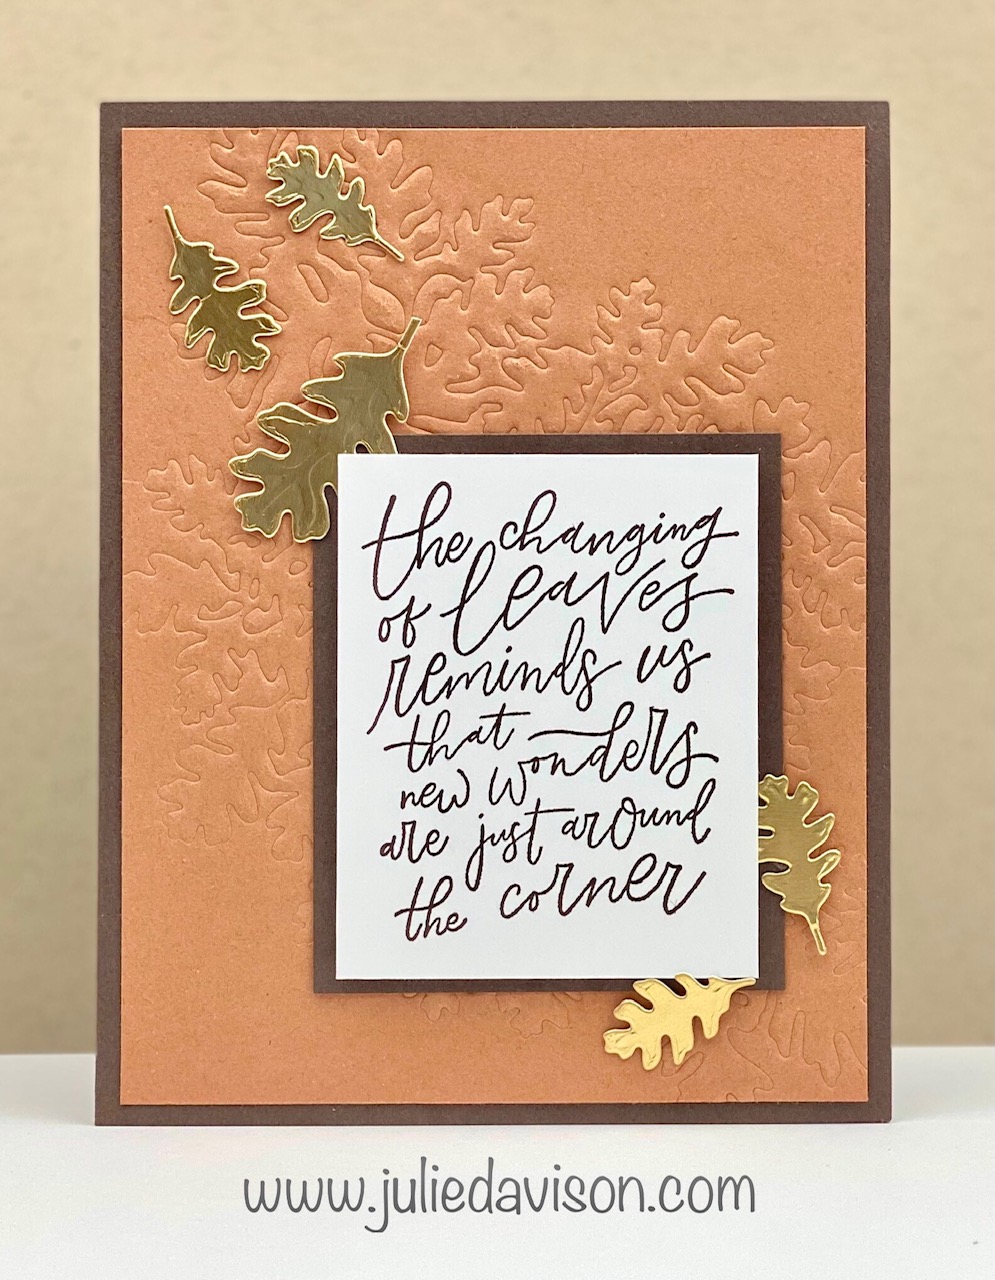 the changing
of leaves
reminds us
that wonders
new
are just around
the corner
www.juliedavison.com